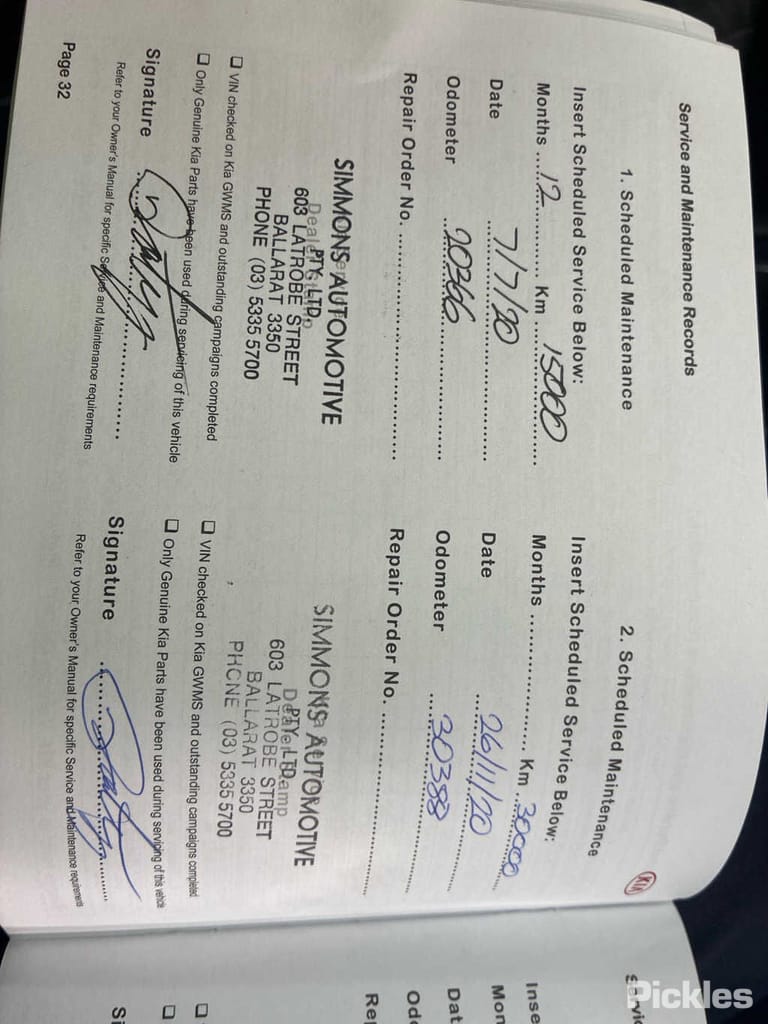 Service and Maintenance Records
1. Scheduled Maintenance
Insert Scheduled Service Below:
Months ...12................ Km ....15000........
Date .......7/7/20.......................
Odometer ..20366.....................
Repair Order No. ........................................
Dealer Stamp
SIMMONS AUTOMOTIVE
PTY. LTD.
603 LATROBE STREET
BALLARAT 3350
PHONE (03) 5335 5700
☐ VIN checked on Kia GWMS and outstanding campaigns completed
☐ Only Genuine Kia Parts have been used during servicing of this vehicle
Signature ........................................
Refer to your Owner's Manual for specific Service and Maintenance requirements
Page 32
KIA
2. Scheduled Maintenance
Insert Scheduled Service Below:
Months ........................ Km ..30000..
Date ..........26/11/20..........
Odometer ....30388................
Repair Order No. ........................................
Dealer Stamp
SIMMONS AUTOMOTIVE
PTY. LTD.
603 LATROBE STREET
BALLARAT 3350
PHONE (03) 5335 5700
☐ VIN checked on Kia GWMS and outstanding campaigns completed
☐ Only Genuine Kia Parts have been used during servicing of this vehicle
Signature ........................................
Refer to your Owner's Manual for specific Service and Maintenance requirements
Servic
Inse
Mon
Dat
Od
Re
☐
☐
Si
Pickles